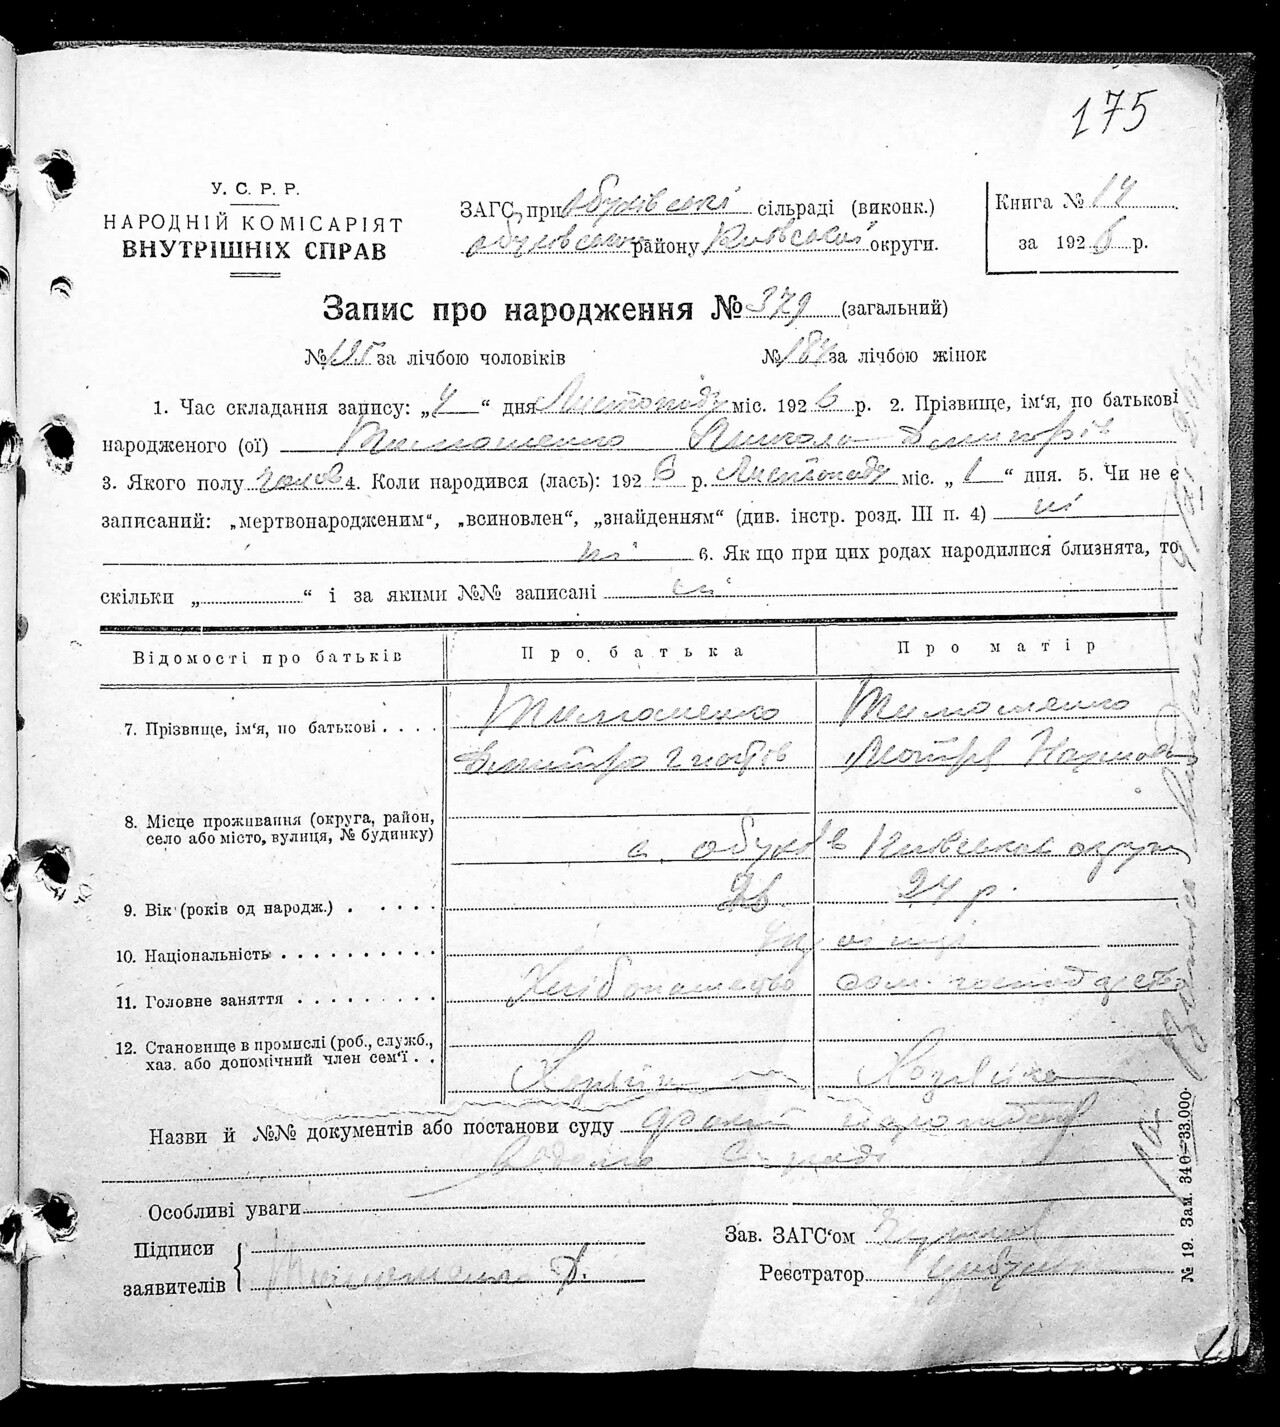 175
У. С. Р. Р.
НАРОДНІЙ КОМІСАРІЯТ
ВНУТРІШНІХ СПРАВ
ЗАГС при Обухівські сільраді (виконк.)
Обуховського району Київської округи.
Книга № 14
за 1926 р.
Запис про народження № 379 (загальний)
№ 195 за лічбою чоловіків № 184 за лічбою жінок
1. Час складання запису: „4“ дня Листопаду міс. 1926 р. 2. Прізвище, ім'я, по батькові
народженого (ої) Тимошенко Микола Дмитрів
3. Якого полу чолов 4. Коли народився (лась): 1926 р. Листопаду міс. „1“ дня. 5. Чи не є
записаний: „мертвонародженим“, „всиновлен“, „знайденням“ (див. інстр. розд. III п. 4) ні
ні 6. Як що при цих родах народилися близнята, то
скільки „ “ і за якими №№ записані ні
Відомості про батьків Про батька Про матір
7. Прізвище, ім'я, по батькові . . . . Тимошенко Тимошенко
Дмитро Гнатів Мотря
8. Місце проживання (округа, район,
село або місто, вулиця, № будинку) с. Обухів Київської округи
9. Вік (років од народж.) . . . . . 26 24 р.
10. Національність . . . . . . . . . . українці
11. Головне заняття . . . . . . . . . Хлібопашество дом. господарство
12. Становище в промислі (роб., служб.,
хаз. або допомічний член сем'ї . . Хозяїн Хозяйка
Назви й №№ документів або постанови суду
Особливі уваги
Підписи
заявителів Тимошенко Д.
Зав. ЗАГС'ом
Реєстратор
№ 19. Зам. 340—33.000.